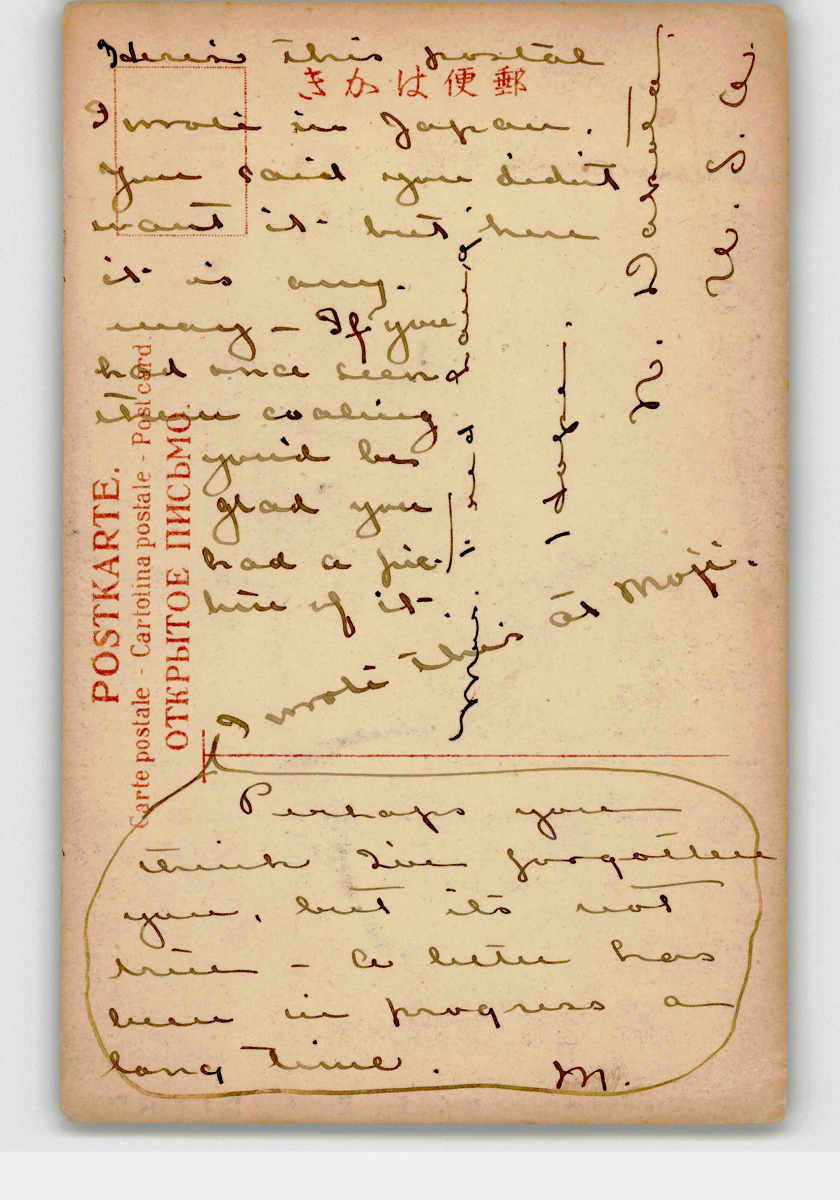 Herein this postal
郵便はかき
I wrote in Japan.
You said you didn't
want it but here
it is any-
way - If you
had once seen
them coaling
you'd be
glad you
had a pic-
ture of it.
I wrote this at Moji.
Perhaps you
think I've forgotten
you, but it's not
true - A letter has
been in progress a
long time.
M.
N. Dakota.
U. S. A.
POSTKARTE.
Carte postale - Cartolina postale - Post card.
ОТКРЫТОЕ ПИСЬМО.